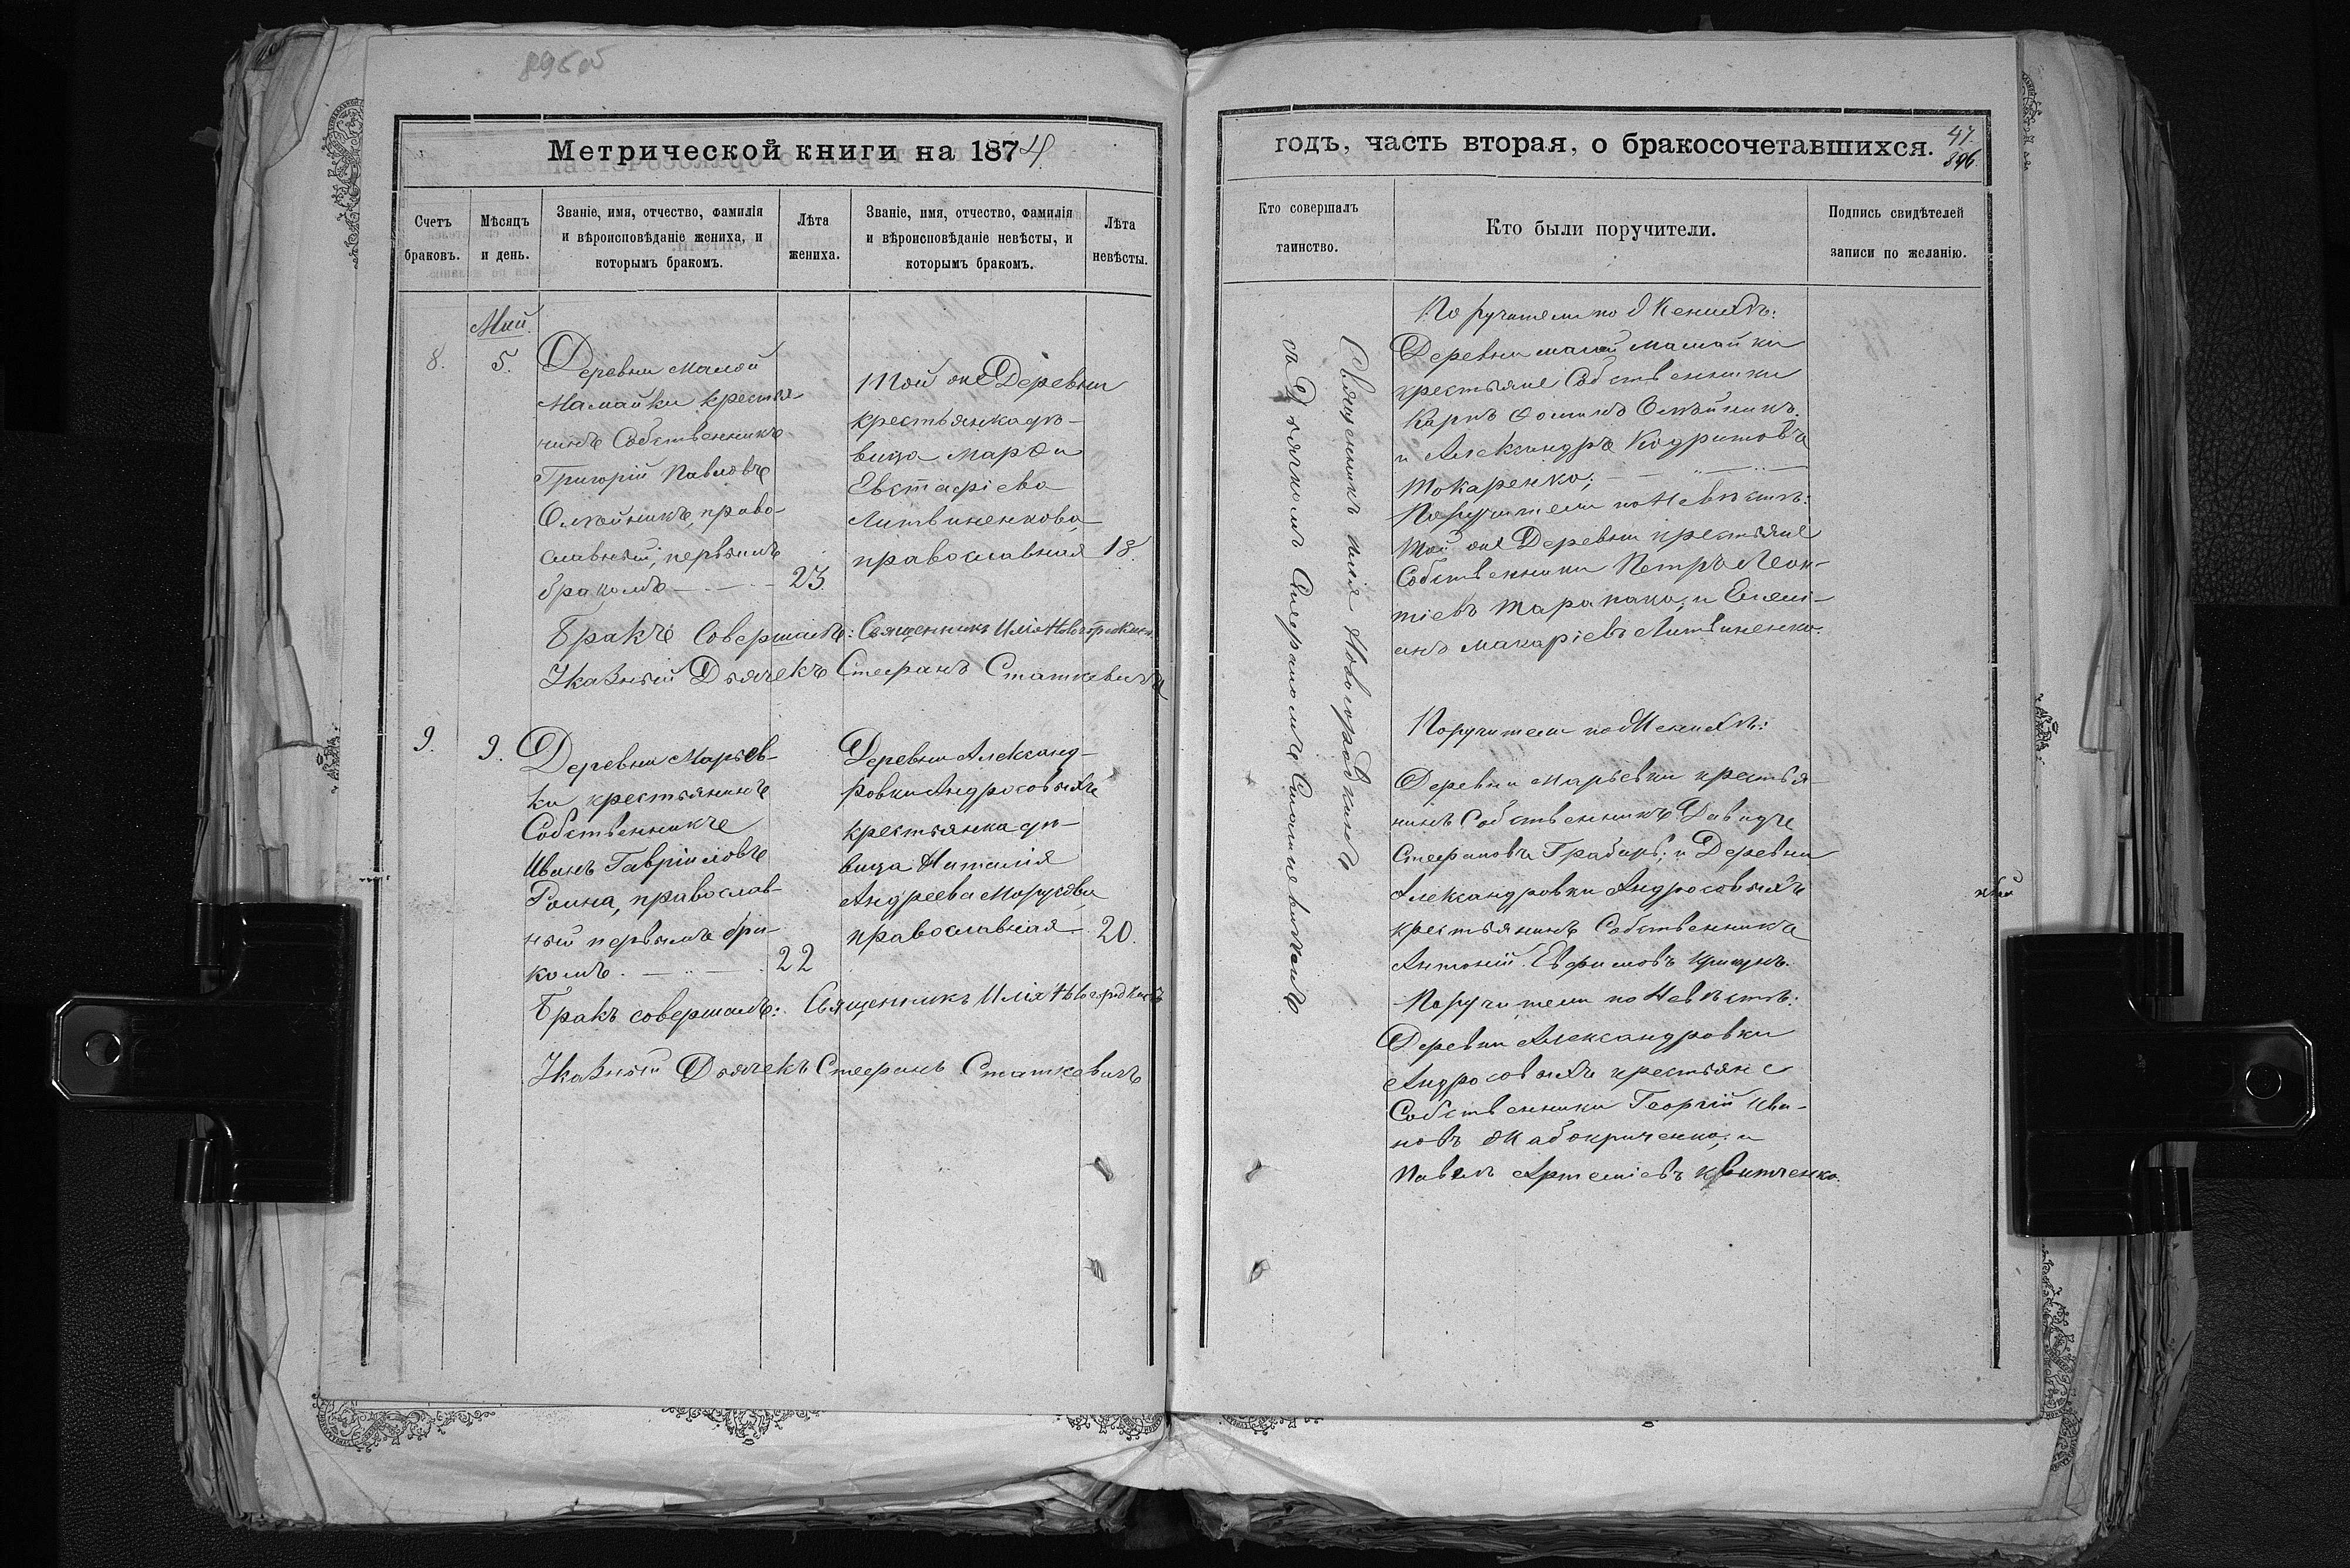 Метрической книги на 1874
Счетъ браковъ.
Мѣсяцъ и день.
Званіе, имя, отчество, фамилія
и вѣроисповѣданіе жениха, и
которымъ бракомъ.
Лѣта
жениха.
Званіе, имя, отчество, фамилія
и вѣроисповѣданіе невѣсты, и
которымъ бракомъ.
Лѣта
невѣсты.
Май.
8.
5.
Деревни Малой
Мамайки крестья-
нинъ Собственникъ
Григорій Павловъ
Олѣйникъ, право-
славный, первымъ
бракомъ
23.
Той же Деревни
крестьянка дѣ-
вица Марѳа
Евстафіева
Литвиненкова
православная
18
Бракъ Совершалъ: Священникъ Илія
Указный Дьячекъ Стефанъ Статкевичъ
9.
9.
Деревни Марьев-
ки крестьянинъ
Собственникъ
Иванъ Гавріиловъ
православ-
ный первымъ бра-
комъ.
22
Деревни Александ-
ровки Андросовыхъ
крестьянка дѣ-
вица Наталія
Андреева
православная
20.
Бракъ совершалъ: Священникъ Илія
Указный Дьячекъ Стефанъ Статкевичъ
годъ, часть вторая, о бракосочетавшихся.
47.
896.
Кто совершалъ
таинство.
Кто были поручители.
Подпись свидѣтелей
записи по желанію.
Священникъ Илія Новогородскій
съ Дьячкомъ Стефаномъ Статкевичемъ
Поручители по Женихѣ:
Деревни малой Мамайки
крестьяне Собственники
Карпъ Ѳоминъ Олѣйникъ
и Александръ
Токаренко;
Поручители по Невѣстѣ:
Той же Деревни крестьяне
Собственники Петръ Леон-
тіевъ Тарапака, и Емелі-
анъ Макаріевъ Литвиненко.
Поручители по Женихѣ:
Деревни Марьевки крестья-
нинъ Собственникъ Давидъ
Стефановъ Грабарь; и Деревни
Александровки Андросовыхъ
крестьянинъ Собственникъ
Антоній Евфимовъ
Поручители по Невѣстѣ:
Деревни Александровки
Андросовыхъ крестьяне
Собственники Георгій Ива-
новъ Жабокриченко; и
Павелъ Артеміевъ Квитченко.